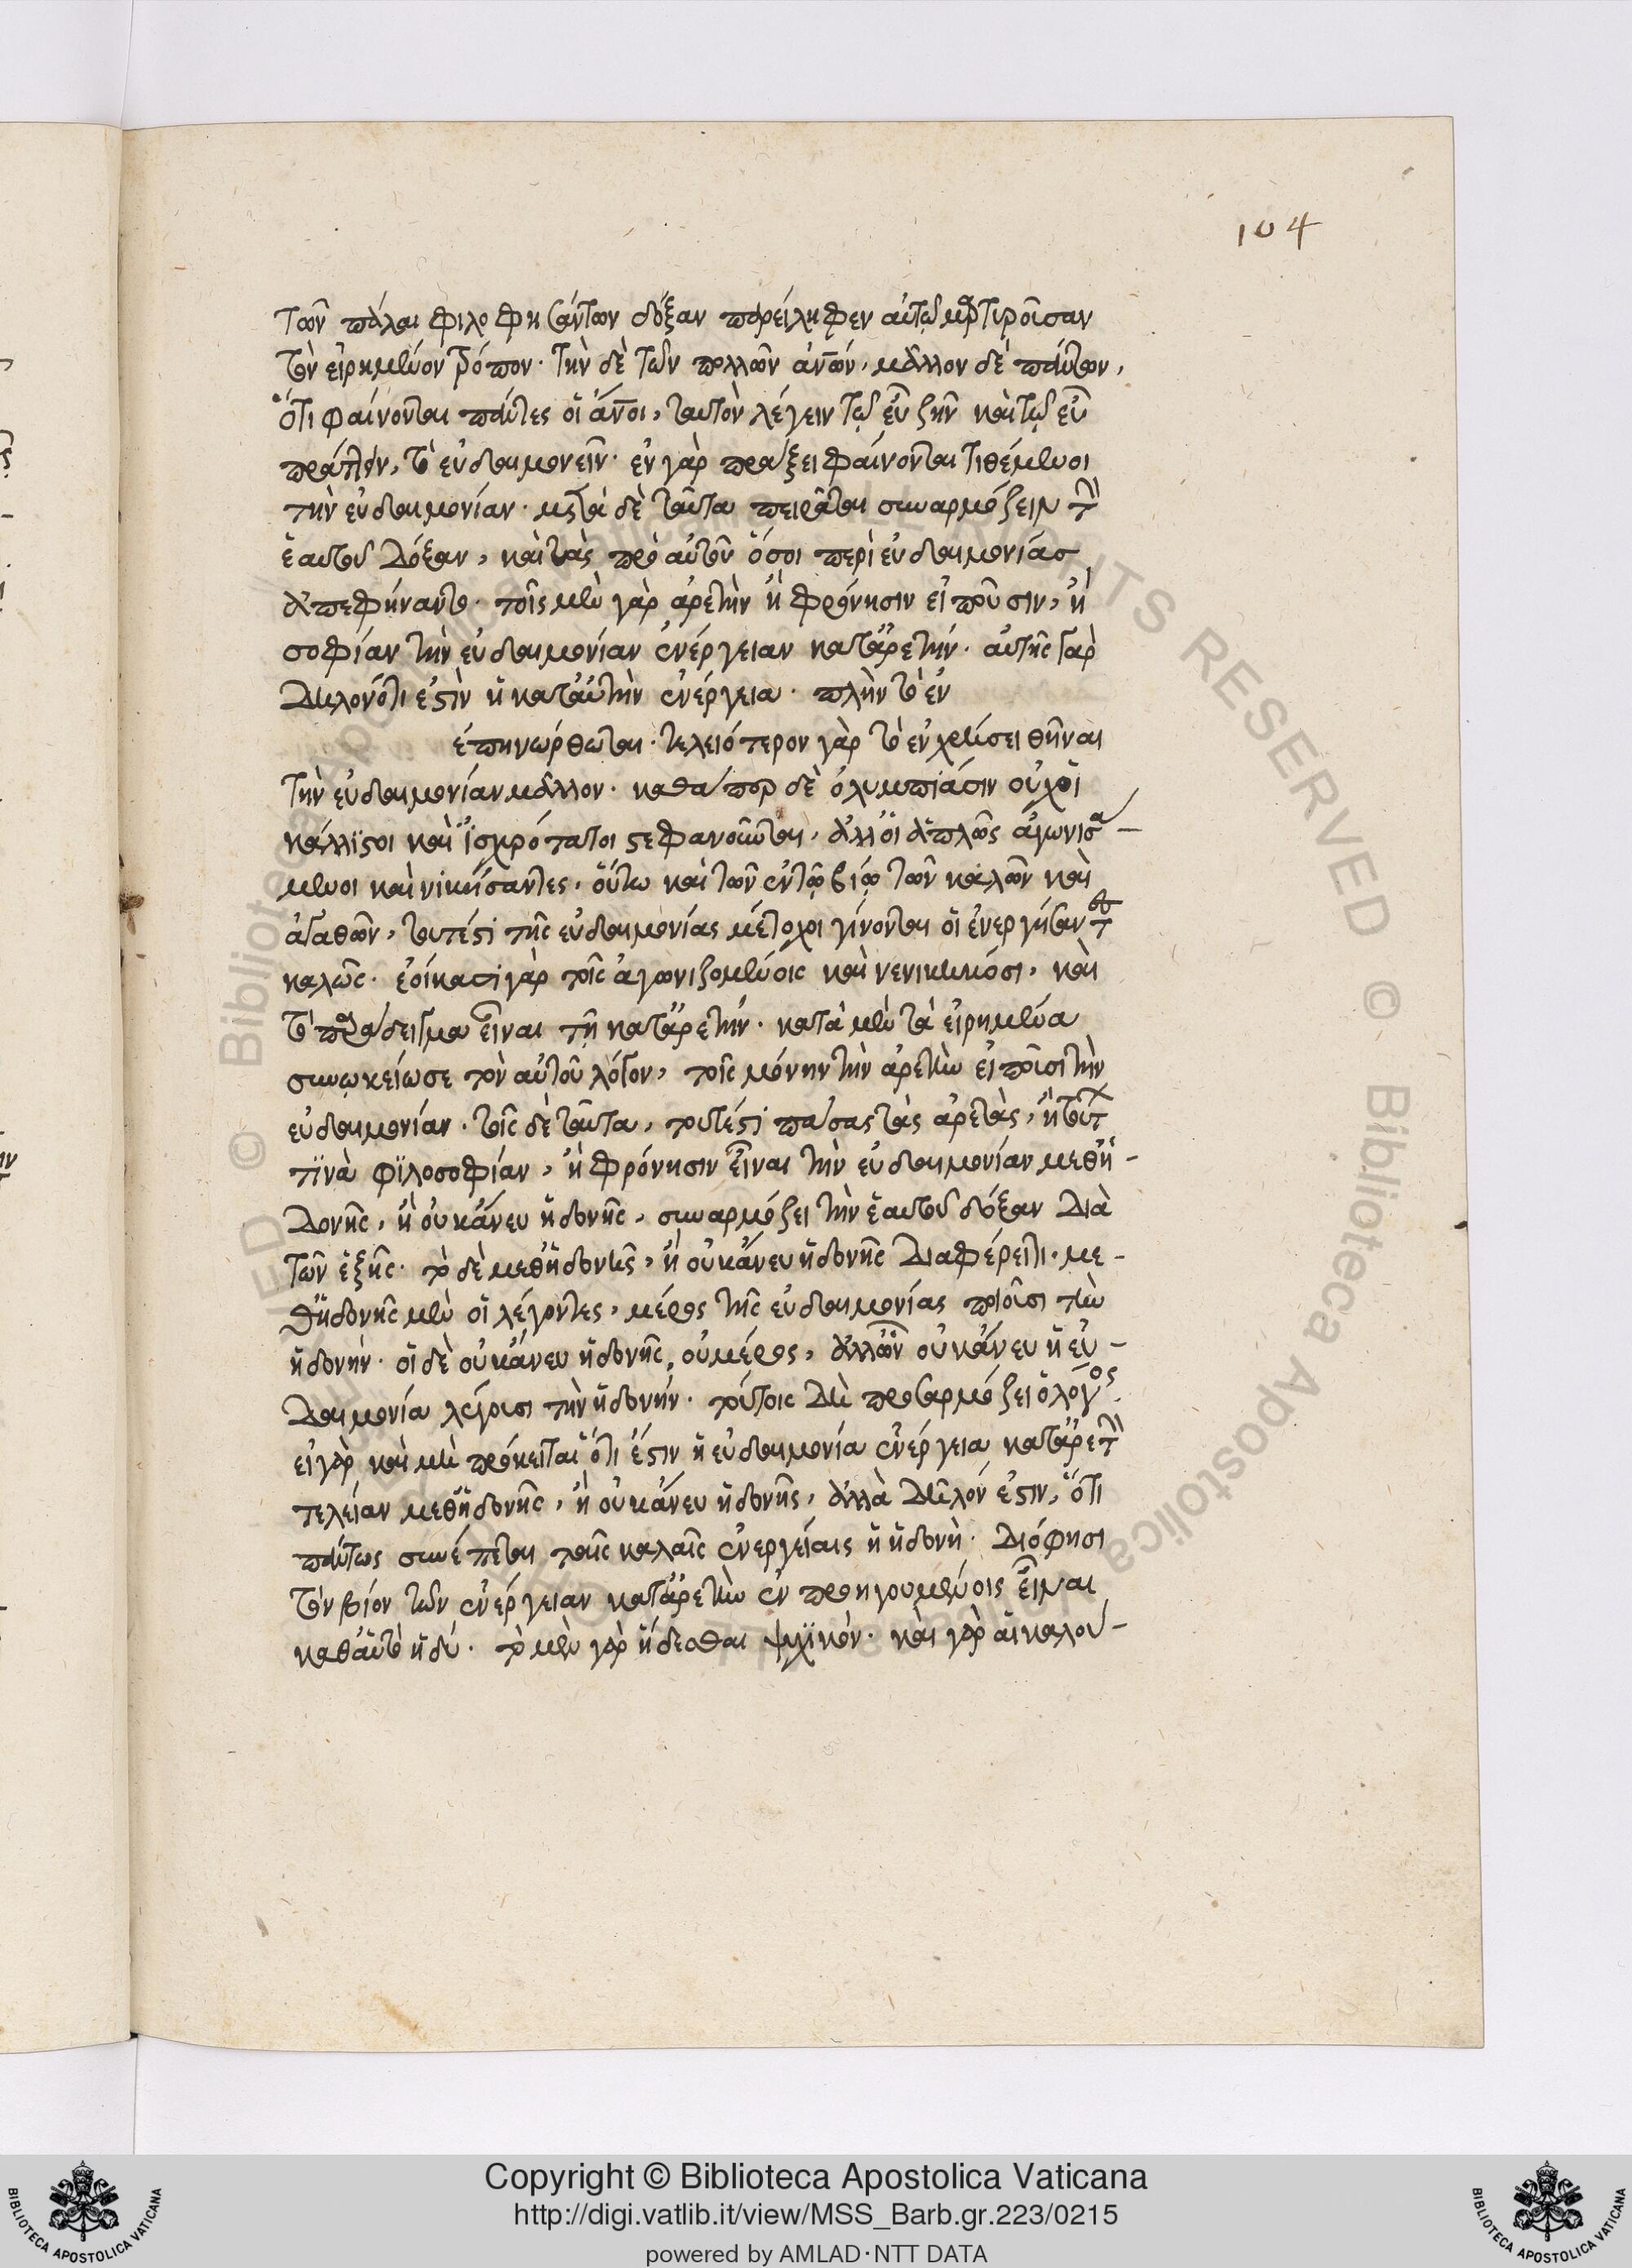 104
τῶν πάλαι φιλοφησάντων δόξαν παρείληφεν αὐτῷ μαρτυροῦσαν
τὸν εἰρημένον τρόπον· τὴν δὲ τῶν πολλῶν ἀνῶν, μᾶλλον δὲ πάντων,
ὅτι φαίνονται πάντες οἱ ἄνοι, ταυτὸν λέγειν τῷ εὖ ζῆν καὶ τῷ εὖ
πράττειν, τὸ εὐδαιμονεῖν· ἐν γὰρ πράξει φαίνονται τιθέμενοι
τὴν εὐδαιμονίαν· μετὰ δὲ ταῦτα πειρᾶται συναρμόζειν τὴν
ἑαυτοῦ δόξαν, καὶ τὰς πρὸ αὐτοῦ ὅσοι περὶ εὐδαιμονίας
ἀπεφήναντο· τοῖς μὲν γὰρ ἀρετὴν ἢ φρόνησιν εἰποῦσιν, ἢ
σοφίαν τὴν εὐδαιμονίαν ἐνέργειαν κατ' ἀρετήν· αὐτῆς γὰρ
δηλονότι ἐστὶν ἡ κατ' αὐτὴν ἐνέργεια· πλὴν τὸ ἐν
ἐπηνώρθωται· τελειότερον γὰρ τὸ ἐν χρήσει θῆναι
τὴν εὐδαιμονίαν μᾶλλον· καθάπερ δὲ ὀλυμπιάσιν οὐχ οἱ
κάλλιστοι καὶ ἰσχυρότατοι στεφανοῦνται, ἀλλ' οἱ ἁπλῶς ἀγωνισά-
μενοι καὶ νικήσαντες, οὕτω καὶ τῶν ἐν τῷ βίῳ τῶν καλῶν καὶ
ἀγαθῶν, τουτέστι τῆς εὐδαιμονίας μέτοχοι γίνονται οἱ ἐνεργήσαντες
καλῶς· ἐοίκασι γὰρ τοῖς ἀγωνιζομένοις καὶ νενικηκόσι, καὶ
τὸ παράδειγμα εἶναι τῇ κατ' ἀρετήν· κατὰ μὲν τὰ εἰρημένα
συνῳκείωσε τὸν αὐτοῦ λόγον, τοῖς μόνην τὴν ἀρετὴν εἰποῦσι τὴν
εὐδαιμονίαν· τοῖς δὲ ταῦτα, τουτέστι πάσας τὰς ἀρετάς, ἢ τούτων
τινὰ φιλοσοφίαν, ἢ φρόνησιν εἶναι τὴν εὐδαιμονίαν μεθ' ἡ-
δονῆς, ἢ οὐκ ἄνευ ἡδονῆς, συναρμόζει τὴν ἑαυτοῦ δόξαν διὰ
τῶν ἑξῆς· τὸ δὲ μεθ' ἡδονῆς, ἢ οὐκ ἄνευ ἡδονῆς διαφέρει τι· με-
θ' ἡδονῆς μὲν οἱ λέγοντες, μέρος τῆς εὐδαιμονίας ποιοῦσι τὴν
ἡδονήν· οἱ δὲ οὐκ ἄνευ ἡδονῆς, οὐ μέρος, ἀλλ' ὧν οὐκ ἄνευ ἡ εὐ-
δαιμονία λέγουσι τὴν ἡδονήν· τούτοις δὴ προσαρμόζει ὁ λόγος·
εἰ γὰρ καὶ μὴ πρόκειται ὅτι ἐστὶν ἡ εὐδαιμονία ἐνέργεια κατ' ἀρετὴν
τελείαν μεθ' ἡδονῆς, ἢ οὐκ ἄνευ ἡδονῆς, ἀλλὰ δῆλόν ἐστιν, ὅτι
πάντως συνέπεται ταῖς καλαῖς ἐνεργείαις ἡ ἡδονή· διό φησι
τὸν βίον τῶν ἐνέργειαν κατ' ἀρετὴν ἐν προηγουμένοις εἶναι
καθ' αὑτὸ ἡδύ· τὸ μὲν γὰρ ἥδεσθαι ψυχικόν· καὶ γὰρ αἱ καλού-
Copyright © Biblioteca Apostolica Vaticana
http://digi.vatlib.it/view/MSS_Barb.gr.223/0215
powered by AMLAD·NTT DATA